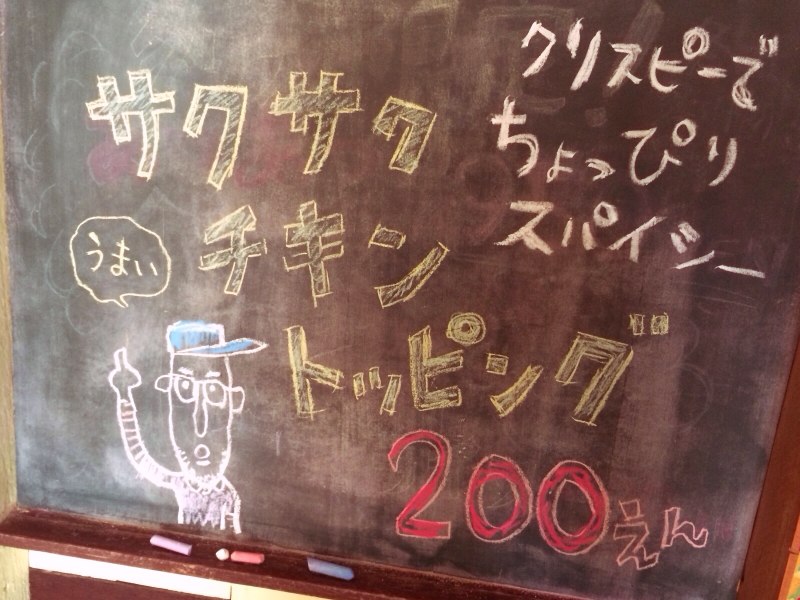 サクサク
チキン
トッピング
200えん
クリスピーで
ちょっぴり
スパイシー
うまい